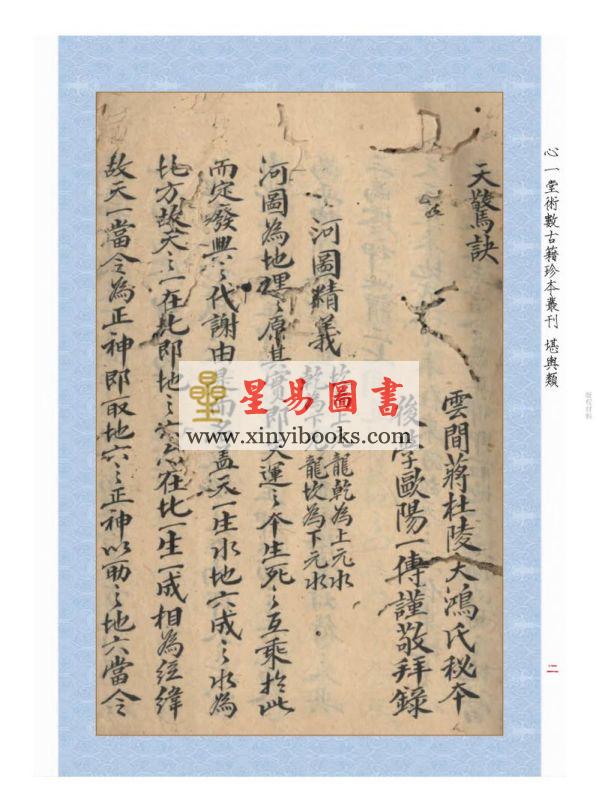 心一堂術數古籍珍本叢刊 堪輿類
二
天驚訣
雲間蔣杜陵大鴻氏秘本
後學歐陽一傳謹敬拜錄
河圖精義
坎為上元龍乾為上元水
乾為下元龍坎為下元水
河圖為地理之原其實即天運之本生死之互乘於此
而定發興之代謝由是而名蓋天一生水地六成之水為
北方故天之一在北即地之六亦在北一生一成相為經緯
故天一當令為正神即取地六之正神以助之地六當令
星易圖書
www.xinyibooks.com